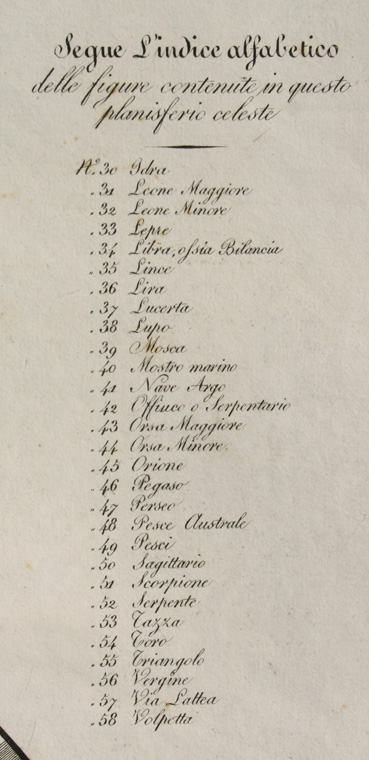 Segue L'indice alfabetico
delle figure contenute in questo
planisferio celeste
N.o 30 Idra
. 31 Leone Maggiore
. 32 Leone Minore
. 33 Lepre
. 34 Libra, ossia Bilancia
. 35 Lince
. 36 Lira
. 37 Lucerta
. 38 Lupo
. 39 Mosca
. 40 Mostro marino
. 41 Nave Argo
. 42 Offiuco o Serpentario
. 43 Orsa Maggiore
. 44 Orsa Minore.
. 45 Orione
. 46 Pegaso
. 47 Perseo
. 48 Pesce Australe
. 49 Pesci
. 50 Sagittario
. 51 Scorpione
. 52 Serpente
. 53 Tazza
. 54 Toro
. 55 Triangolo
. 56 Vergine
. 57 Via Lattea
. 58 Volpetta